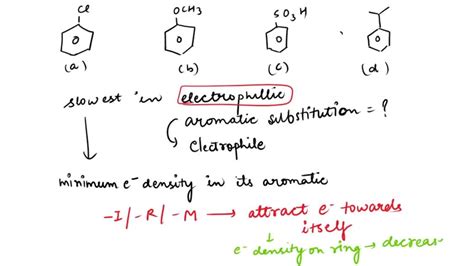 Cl OCH3 SO3H
(a) (b) (c) (d)
slowest in electrophillic
aromatic substitution = ?
Electrophile
minimum e- density in its aromatic
-I/-R/-M → attract e- towards
itself
e- density on ring → decreas